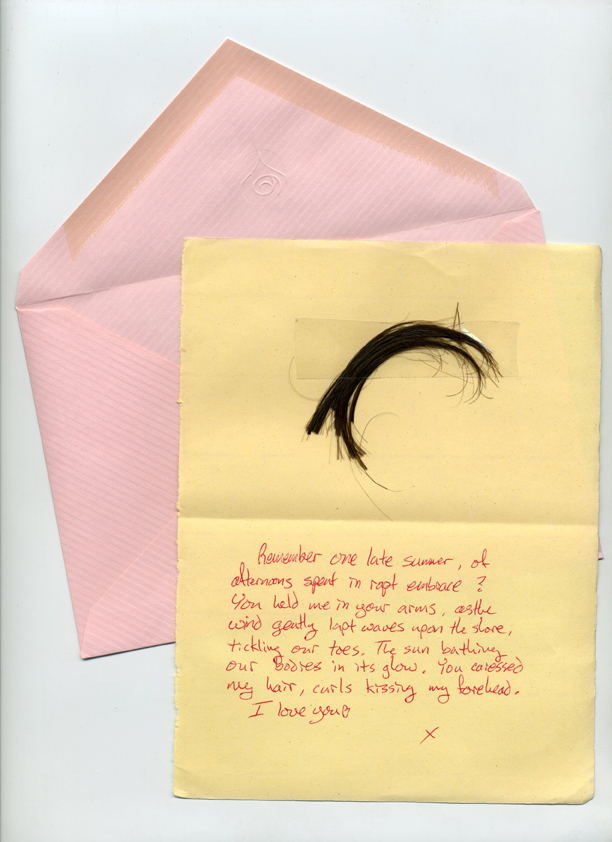 Remember one late summer, of
afternoons spent in rapt embrace ?
You held me in your arms, as the
wind gently lapt waves upon the shore,
tickling our toes. The sun bathing
our Bodies in its glow. You caressed
my hair, curls kissing my forehead.
I love you
x